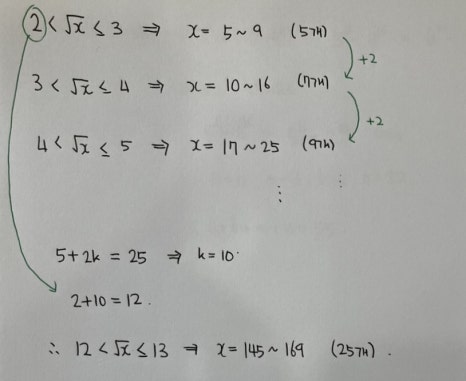 2 < √x ≤ 3 ⇒ x = 5 ~ 9 (5개)
+2
3 < √x ≤ 4 ⇒ x = 10 ~ 16 (7개)
+2
4 < √x ≤ 5 ⇒ x = 17 ~ 25 (9개)
⋮ ⋮
5 + 2k = 25 ⇒ k = 10.
2 + 10 = 12.
∴ 12 < √x ≤ 13 ⇒ x = 145 ~ 169 (25개).